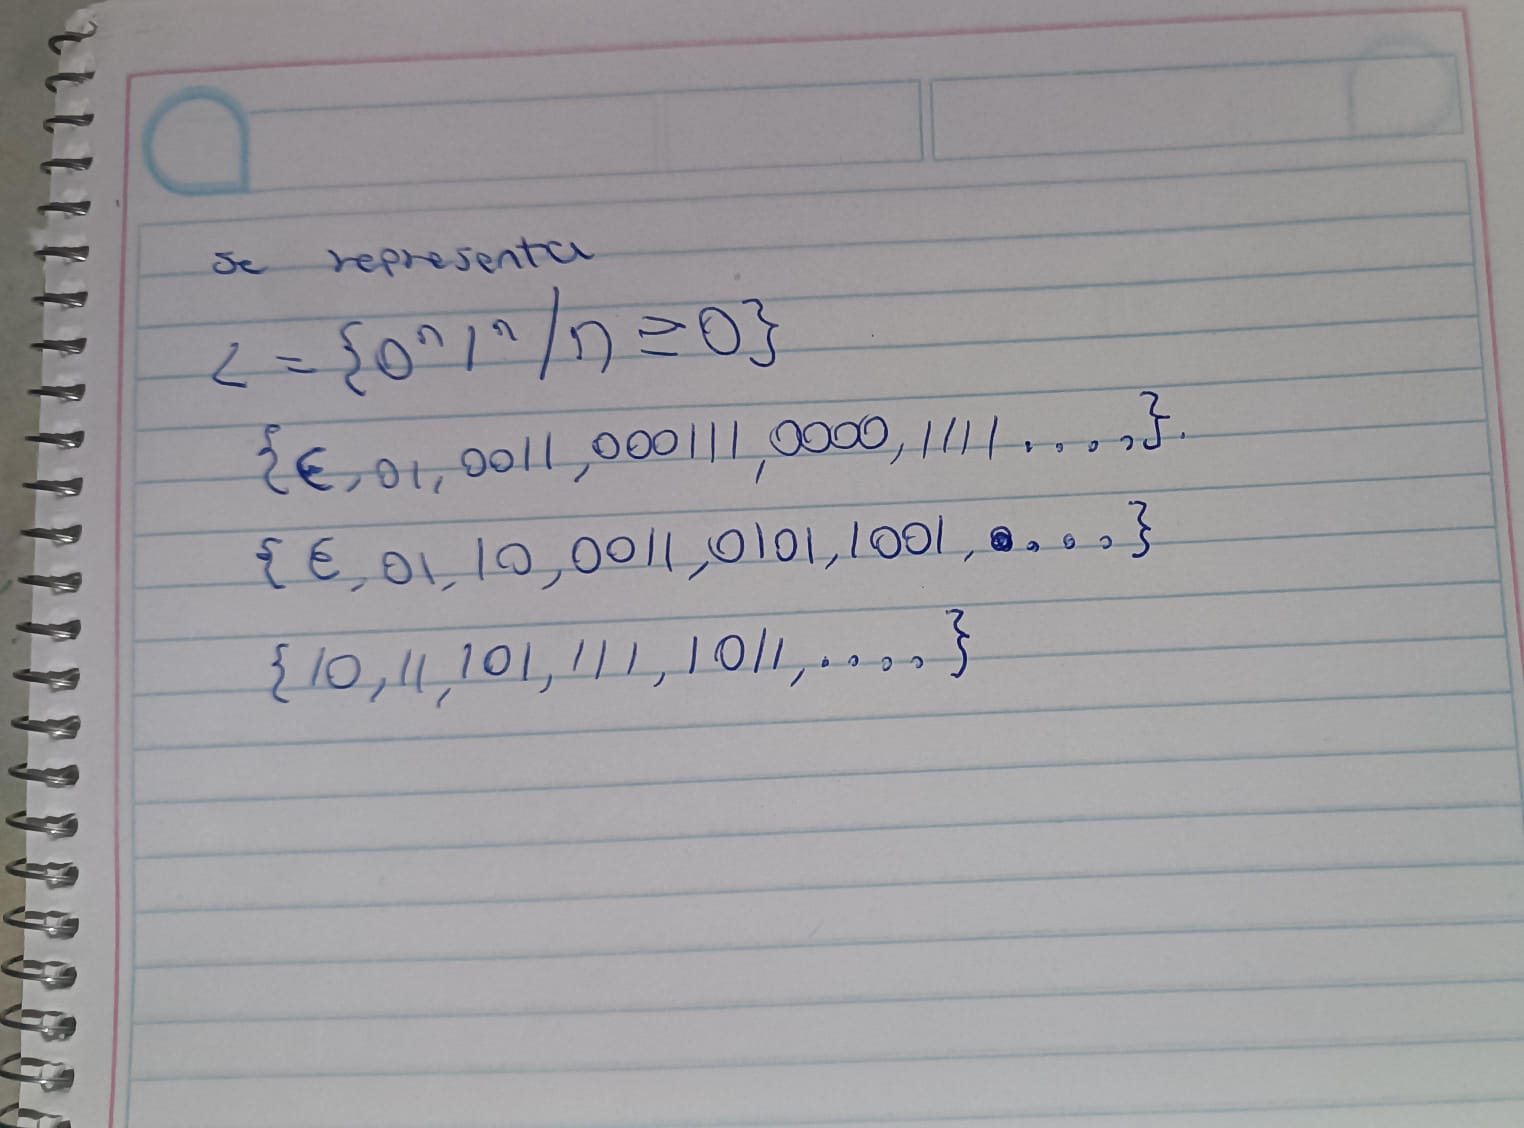 se representa
L = {0ⁿ1ⁿ/n ≥ 0}
{Є, 01, 0011, 000111, 0000, 1111 ....,}.
{Є, 01, 10, 0011, 0101, 1001, ....}
{10, 11, 101, 111, 1011, ....}